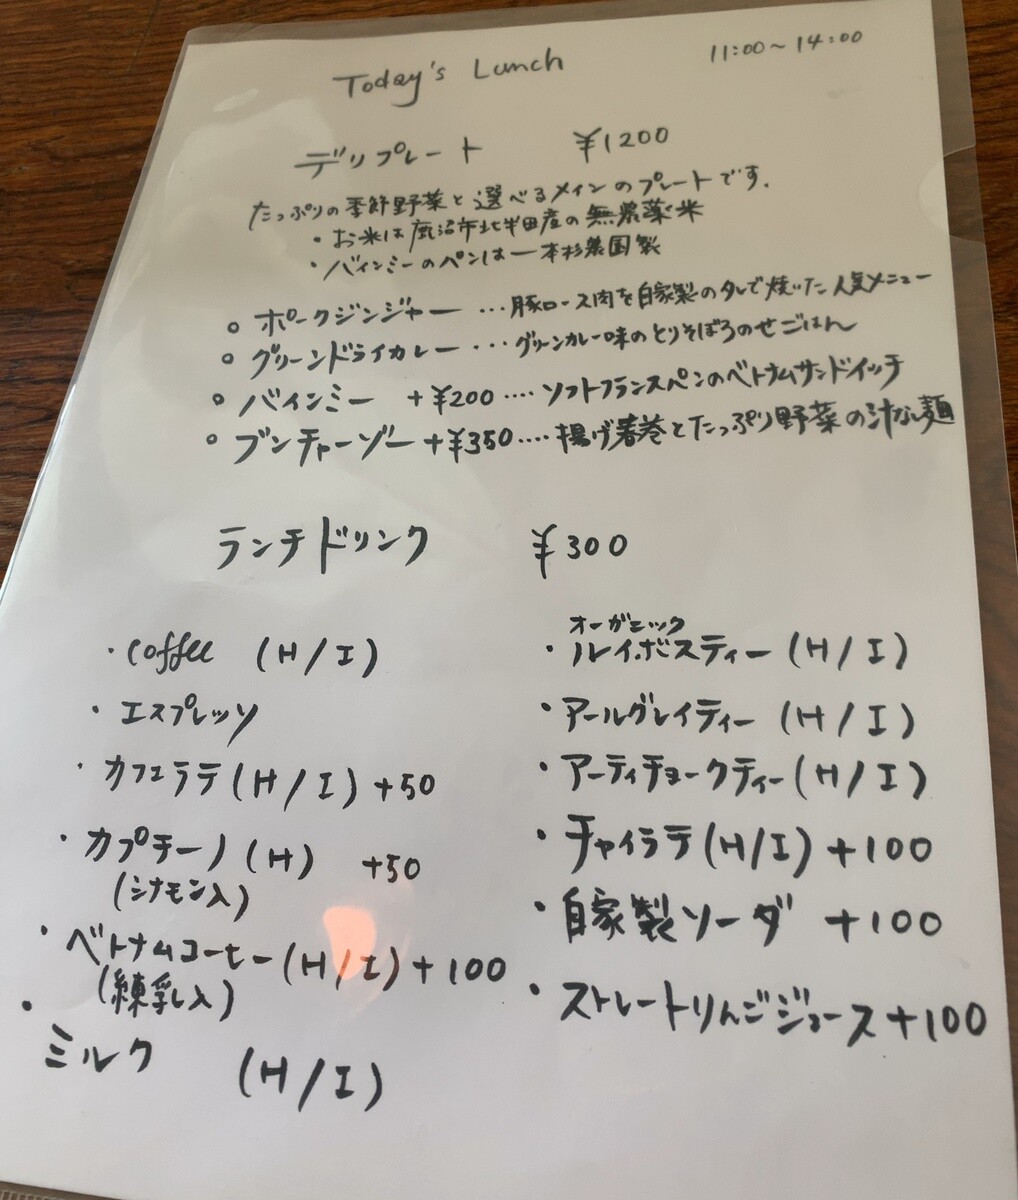 Today's Lunch 11:00〜14:00
デリプレート ¥1200
たっぷりの季節野菜と選べるメインのプレートです.
・お米は鹿沼市北半田産の無農薬米
・バインミーのペンは一本杉農園製
○ ポークジンジャー …豚ロース肉を自家製のタレで焼いた人気メニュー
○ グリーンドライカレー・・・グリーンカレー味のとりそぼろのせごはん
○ バインミー +¥200 ‥‥ソフトフランスペンのベトナムサンドイッチ
○ ブンチャーゾー+¥350‥‥揚げ春巻とたっぷり野菜の汁なし麺
ランチドリンク ¥300
・coffee (H/I)
・エスプレッソ
・カフェラテ(H/I)+50
・カプチーノ(H) +50
(シナモン入)
・ベトナムコーヒー(H/I)+100
(練乳入)
・ミルク (H/I)
オーガニック
・ルイボスティー(H/I)
・アールグレイティー (H/I)
・アーティチョークティー(H/I)
・チャイラテ(H/I)+100
・自家製ソーダ +100
・ストレートりんごジュース+100